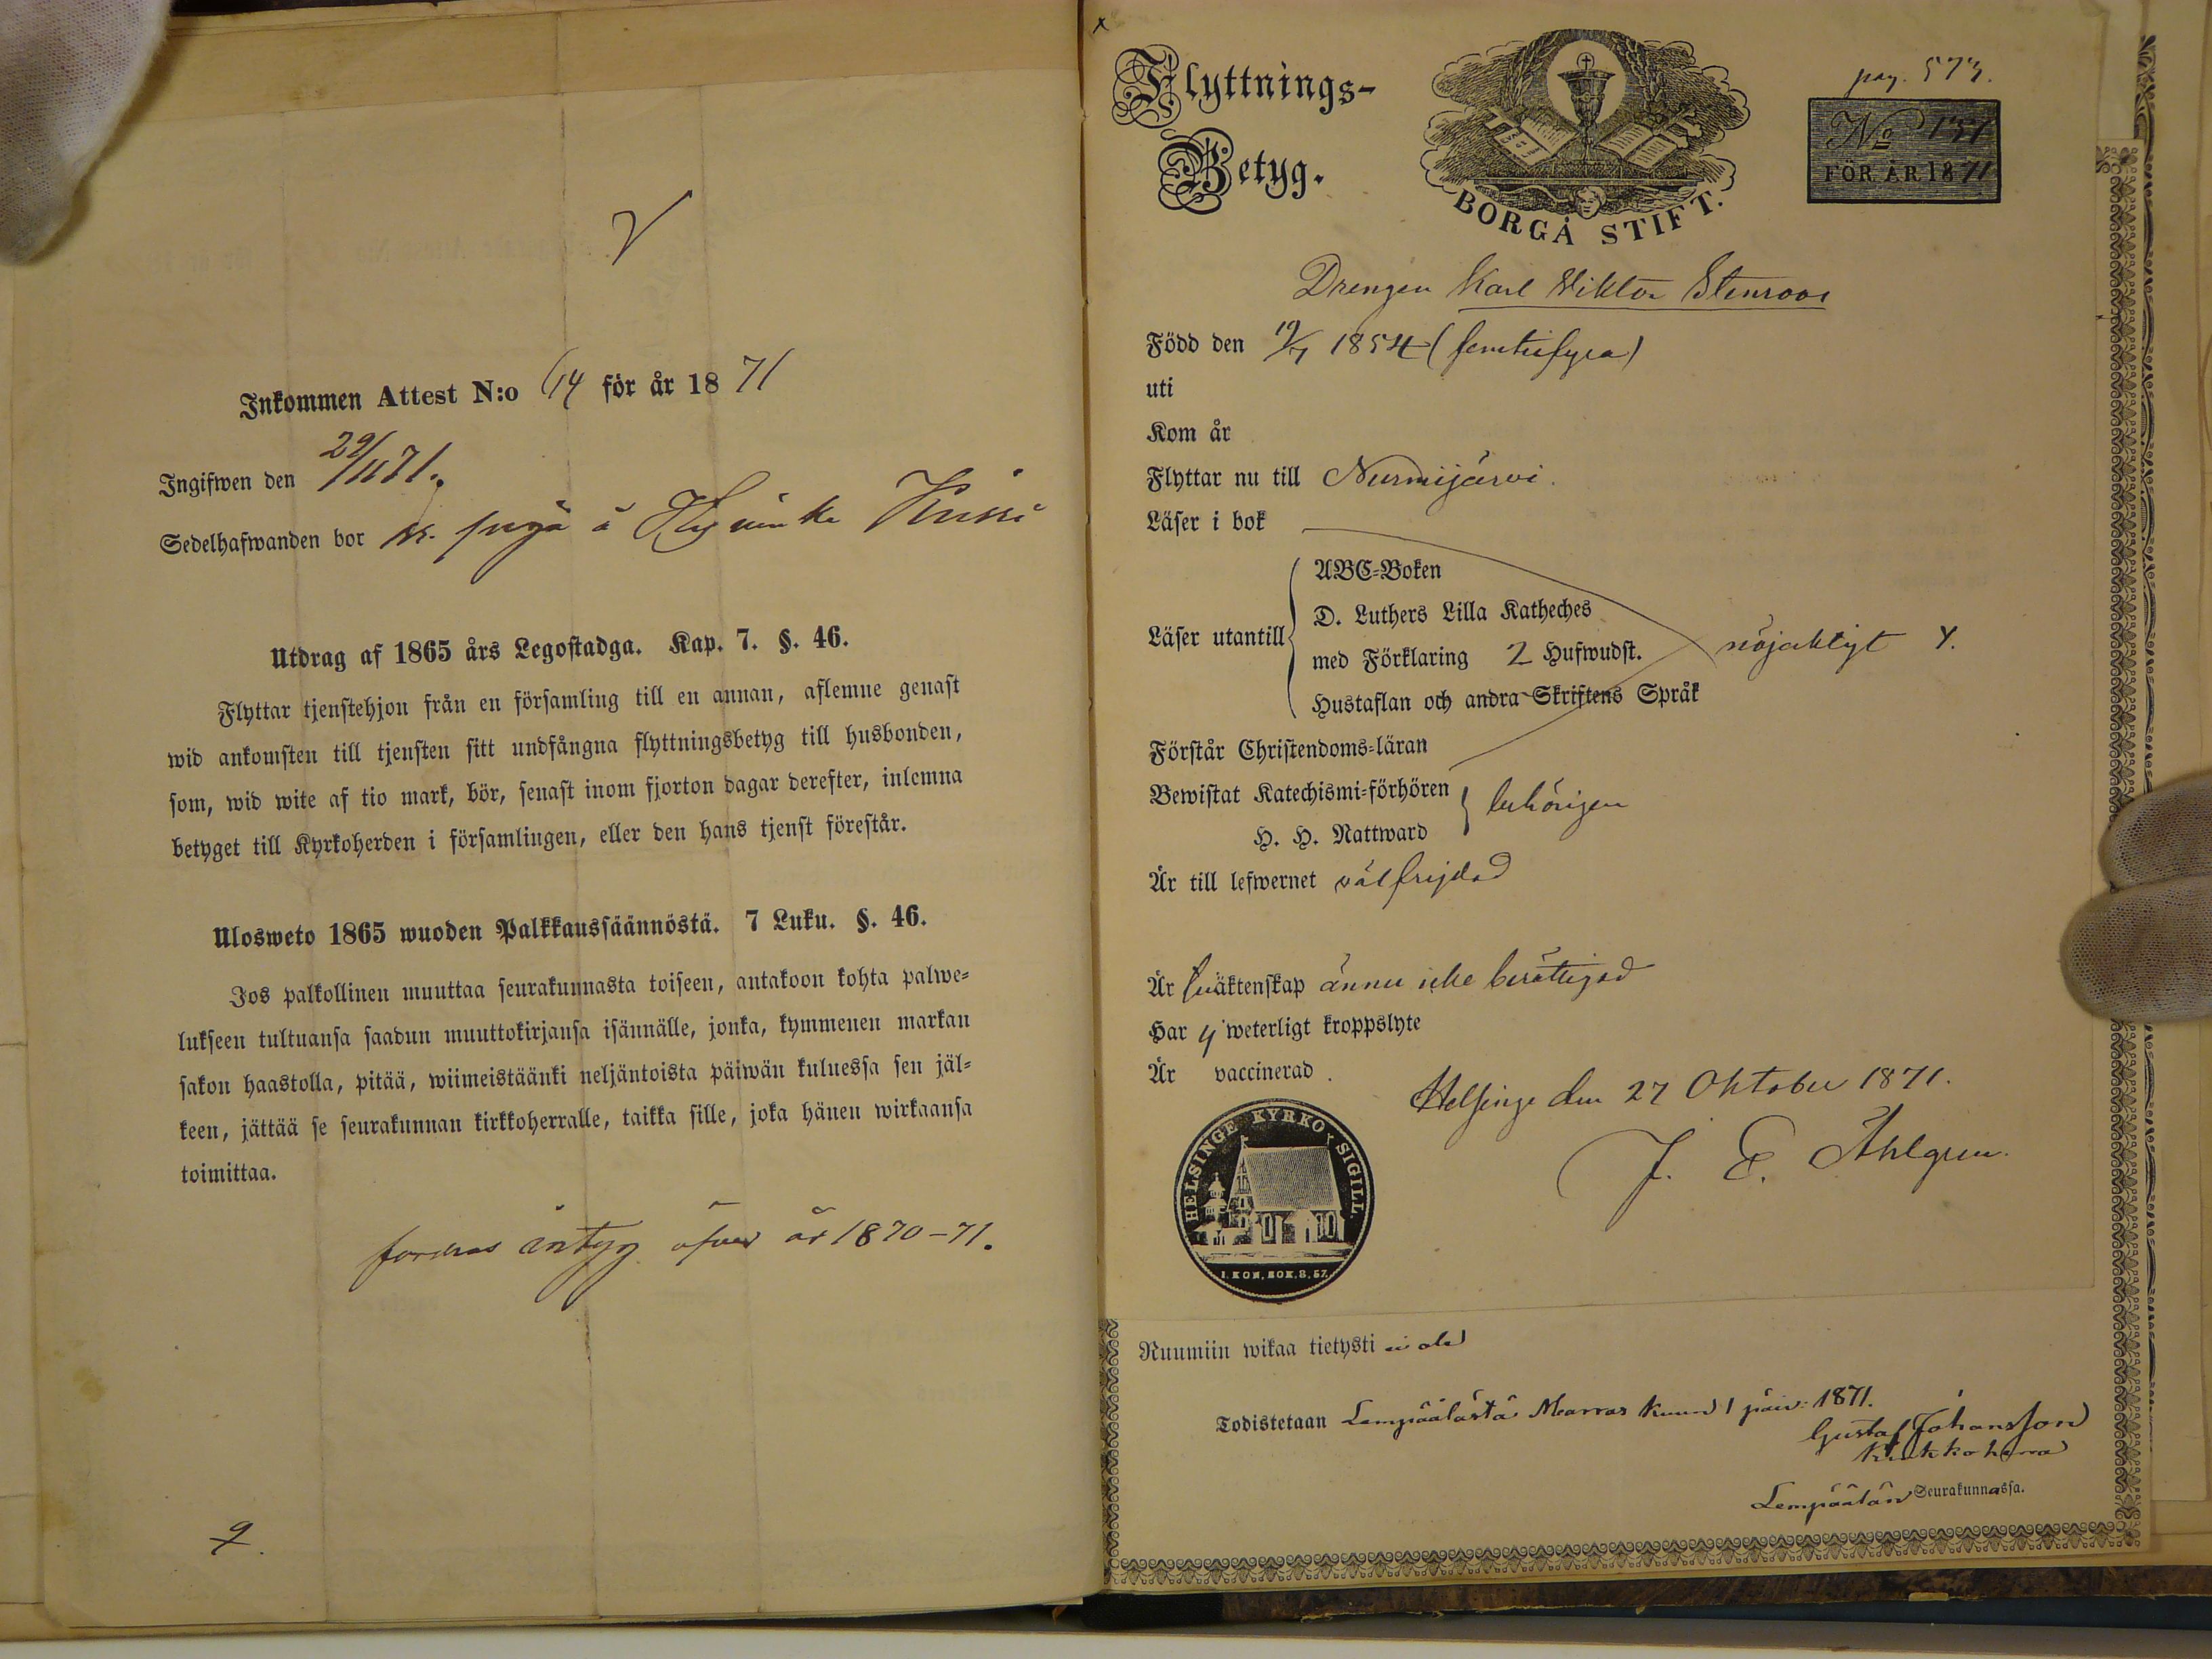 Inkommen Attest N:o 114 för år 1871
Ingifwen den 29/11 71.
Sedelhafwanden bor å Hyvinke
Utdrag af 1865 års Legostadga. Kap. 7. §. 46.
Flyttar tjenstehjon från en församling till en annan, aflemne genast
wid ankomsten till tjensten sitt undfångna flyttningsbetyg till husbonden,
som, wid wite af tio mark, bör, senast inom fjorton dagar derefter, inlemna
betyget till Kyrkoherden i församlingen, eller den hans tjenst förestår.
Ulosweto 1865 wuoden Palkkaussäännöstä. 7 Luku. §. 46.
Jos palkollinen muuttaa seurakunnasta toiseen, antakoon kohta palwe-
lukseen tultuansa saadun muuttokirjansa isännälle, jonka, kymmenen markan
sakon haastolla, pitää, wiimeistäänki neljäntoista päiwän kuluessa sen jäl-
keen, jättää se seurakunnan kirkkoherralle, taikka sille, joka hänen wirkaansa
toimittaa.
fordras intyg öfver år 1870-71.
Flyttnings-
Betyg.
BORGÅ STIFT.
pag. 573.
No 151
FÖR ÅR 1871
Drengen Karl Viktor Stenroos
Född den 19/7 1854 (femtifyra)
uti
Kom år
Flyttar nu till Nurmijärvi.
Läser i bok
Läser utantill
ABC-Boken
D. Luthers Lilla Katheches
med Förklaring 2 Hufwudst.
Hustaflan och andra Skriftens Språk
nöjaktigt
Förstår Christendoms-läran
Bewistat Katechismi-förhören
H. H. Nattward
behörigen
Är till lefwernet välfrejdad
Är till äktenskap ännu icke berättigad
Har ej weterligt kroppslyte
Är vaccinerad.
Helsinge den 27 Oktober 1871.
J. E. Åhlgren.
HELSINGE KYRKO SIGILL.
I. KON. BOK. 8, 57.
Ruumiin wikaa tietysti ei ole
Todistetaan Lempäälästä Marras kuun 1 päiv: 1871.
Gustaf Johansson
Kirkkoherra
Lempäälän Seurakunnassa.